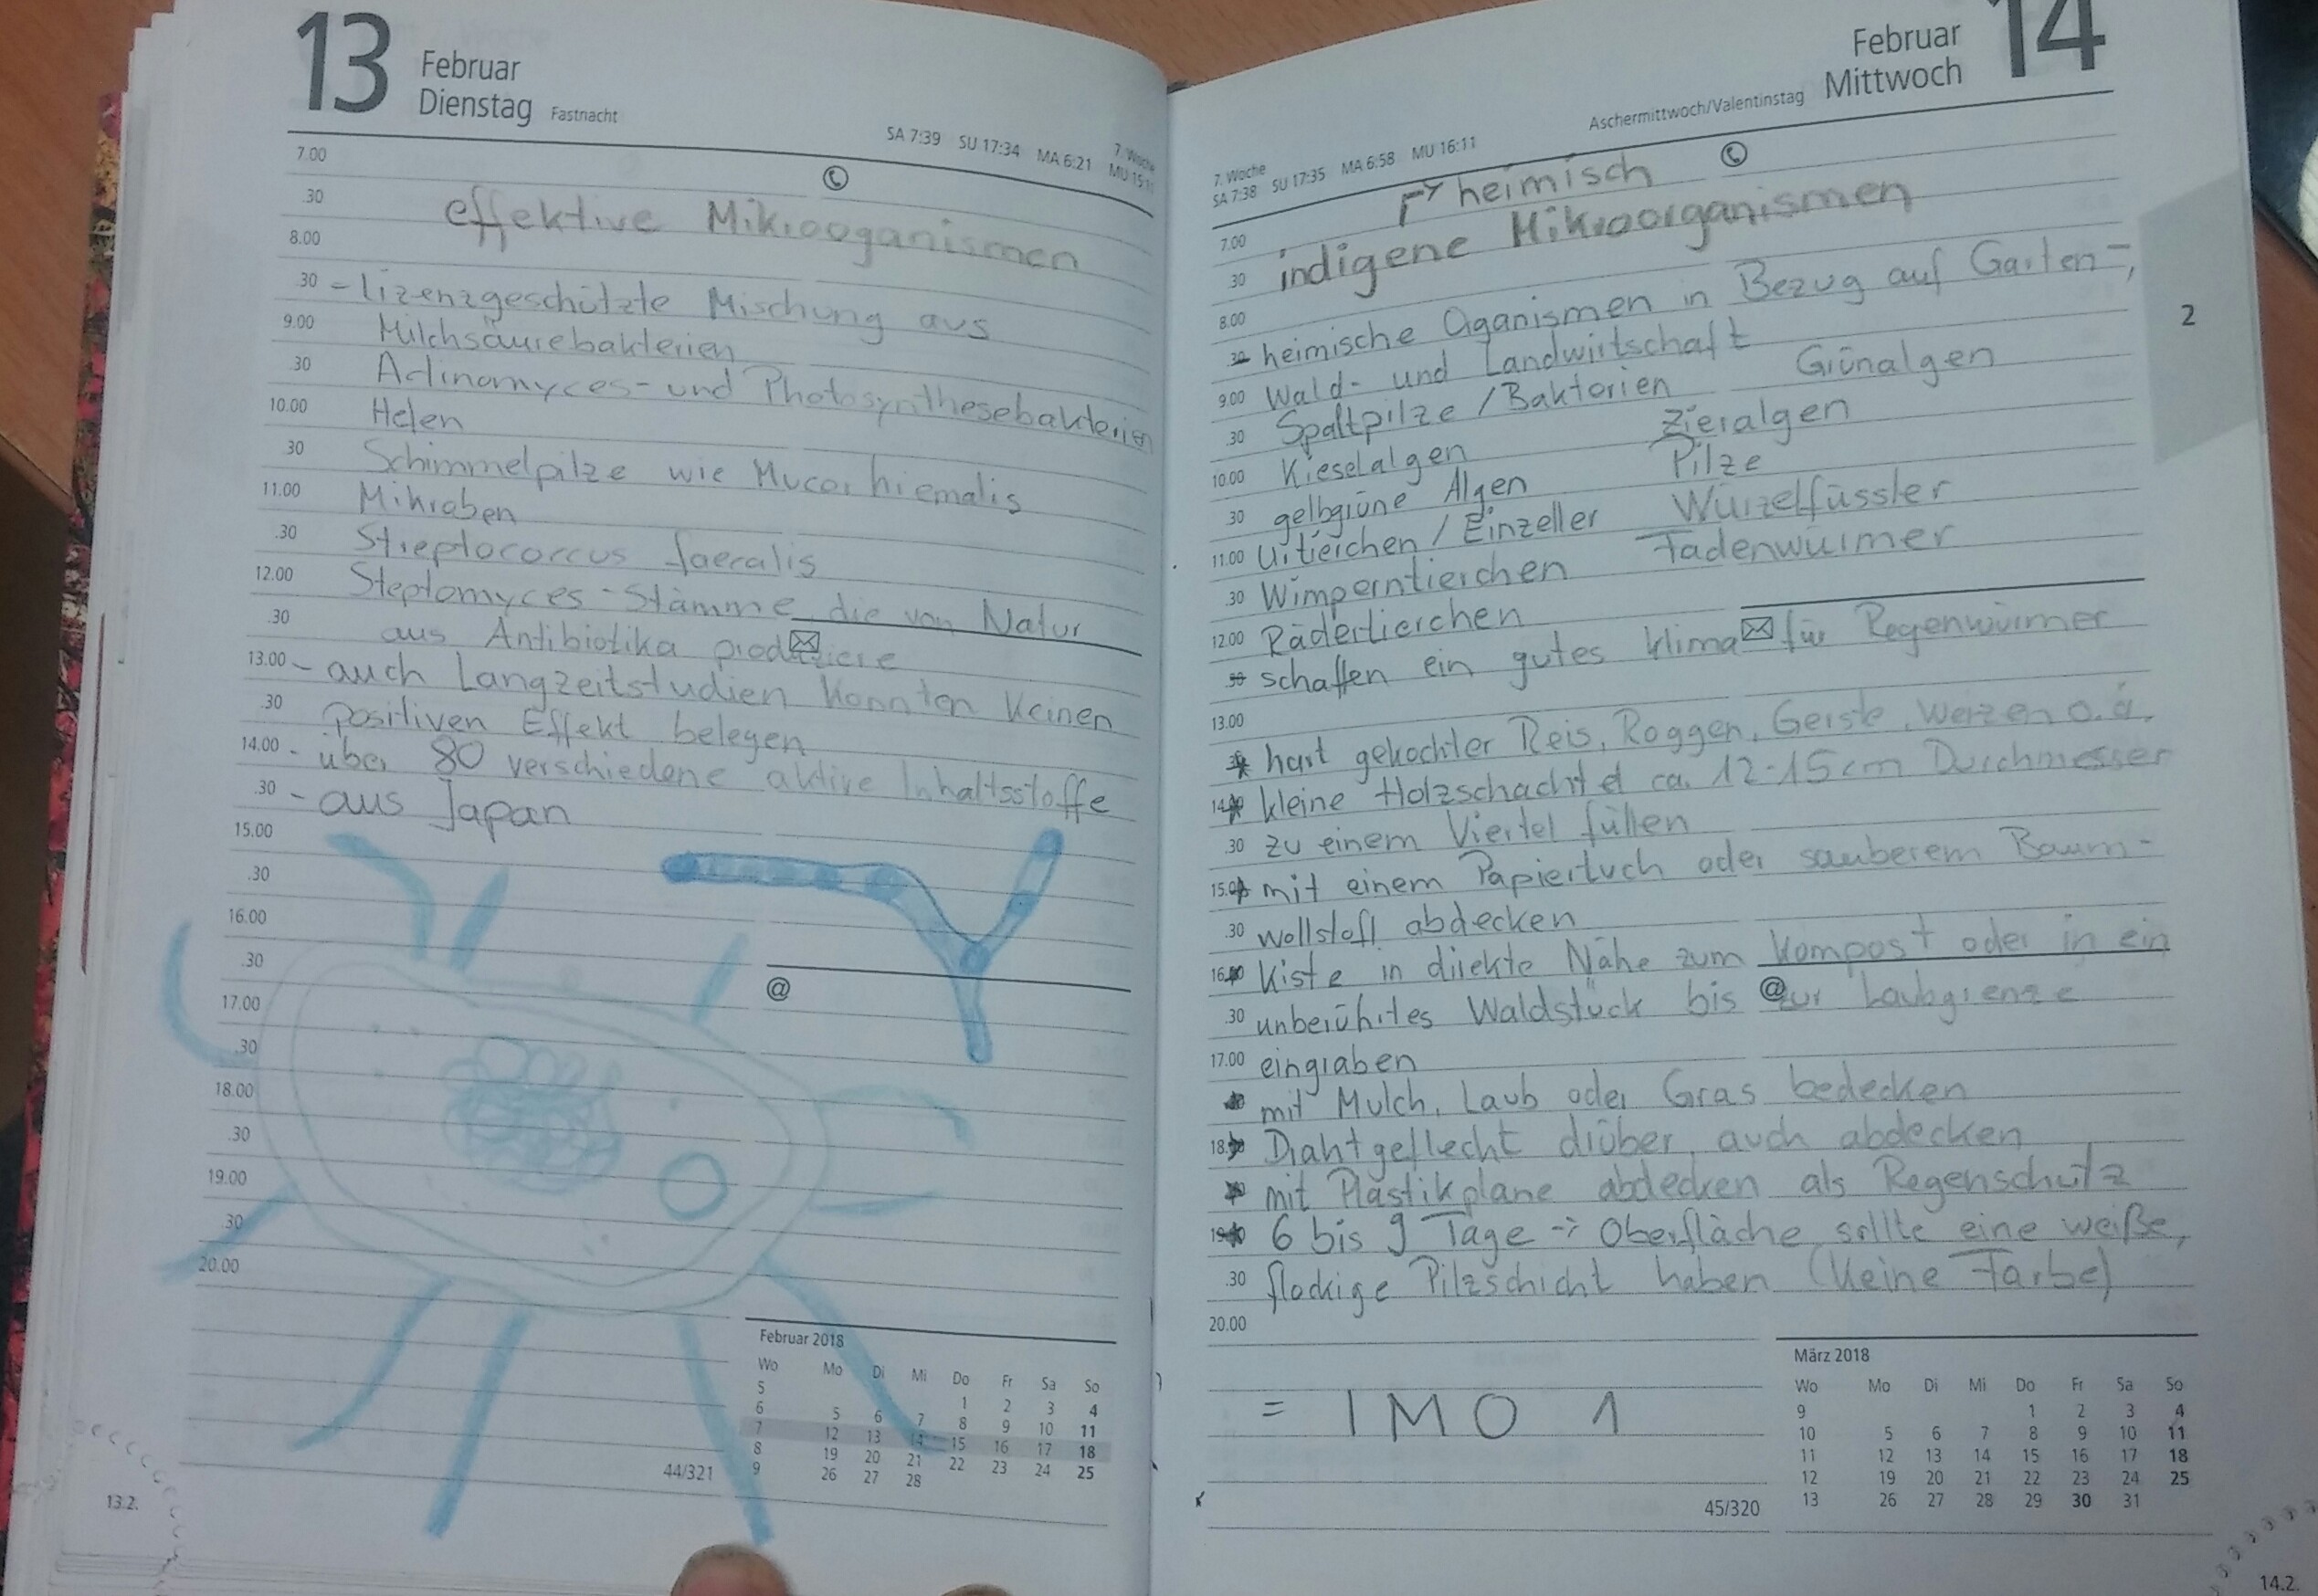 13
Februar
Dienstag Fastnacht
SA 7:39 SU 17:34 MA 6:21
7. Woche
7.00
.30
effektive Mikrooganismen
8.00
.30 - lizenzgeschützte Mischung aus
9.00 Milchsäurebakterien
.30 Actinomyces- und Photosynthesebakterien
10.00 Hefen
.30 Schimmelpilze wie Mucor hiemalis
11.00 Mikroben
.30 Streptococcus faecalis
12.00 Steptomyces-Stämme, die von Natur
.30 aus Antibiotika produziere
13.00 - auch Langzeitstudien konnten keinen
.30 positiven Effekt belegen
14.00 - über 80 verschiedene aktive Inhaltsstoffe
.30 - aus Japan
15.00
.30
16.00
.30
@
17.00
.30
18.00
.30
19.00
.30
20.00
Februar 2018
Wo Mo Di Mi Do Fr Sa So
5 1 2 3 4
6 5 6 7 8 9 10 11
7 12 13 14 15 16 17 18
8 19 20 21 22 23 24 25
9 26 27 28
44/321
13.2.
14
Februar
Mittwoch
Aschermittwoch/Valentinstag
7. Woche
SA 7:38 SU 17:35 MA 6:58 MU 16:11
heimisch
7.00
.30 indigene Mikroorganismen
8.00
- heimische Oganismen in Bezug auf Garten-,
9.00 Wald- und Landwirtschaft
.30 Spaltpilze / Baktorien Grünalgen
10.00 Kieselalgen Zieralgen
.30 gelbgrüne Algen Pilze
11.00 Urtierchen / Einzeller Wurzelfüssler
.30 Wimperntierchen Fadenwürmer
12.00 Rädertierchen
- schaffen ein gutes Klima für Regenwürmer
13.00
hart gekochter Reis, Roggen, Gerste, Weizen o.ä.
kleine Holzschachtel ca. 12-15cm Durchmesser
.30 zu einem Viertel füllen
mit einem Papiertuch oder sauberem Baum-
.30 wollstoff abdecken
Kiste in direkte Nähe zum Kompost oder in ein
.30 unberührtes Waldstück bis zur Laubgrenze
17.00 eingraben
mit Mulch, Laub oder Gras bedecken
Drahtgeflecht drüber, auch abdecken
mit Plastikplane abdecken als Regenschutz
6 bis 9 Tage -> Oberfläche sollte eine weiße,
.30 flockige Pilzschicht haben (keine Farbe)
20.00
= IMO 1
März 2018
Wo Mo Di Mi Do Fr Sa So
9 1 2 3 4
10 5 6 7 8 9 10 11
11 12 13 14 15 16 17 18
12 19 20 21 22 23 24 25
13 26 27 28 29 30 31
45/320
14.2.
2